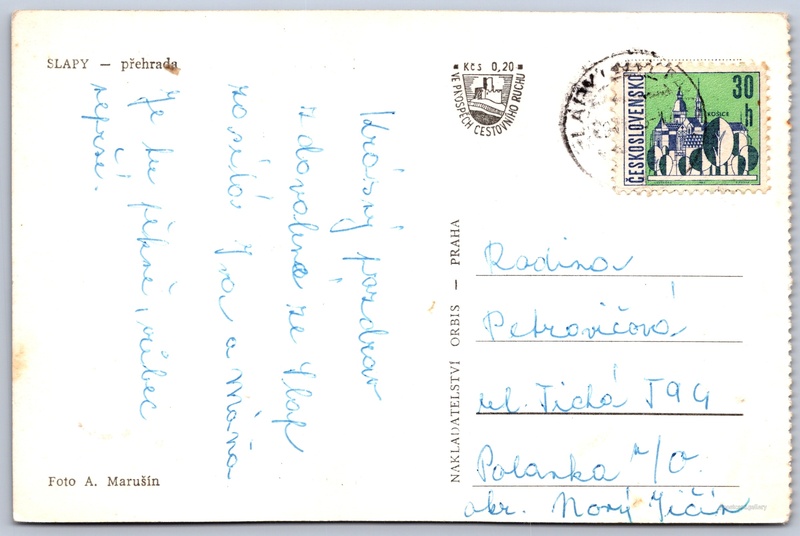 SLAPY — přehrada
Krásný pozdrav
z dovolené ze Slap
zasílá Iva a Máňa
Je tu pěkně, vůbec
neprše.
Foto A. Marušín
Kčs 0,20
VE PROSPĚCH CESTOVNÍHO RUCHU
NAKLADATELSTVÍ ORBIS — PRAHA
ČESKOSLOVENSKO
30 h
KOŠICE
Rodina
Petrovičová
ul. Tichá
Polanka n/O.
okr. Nový Jičín